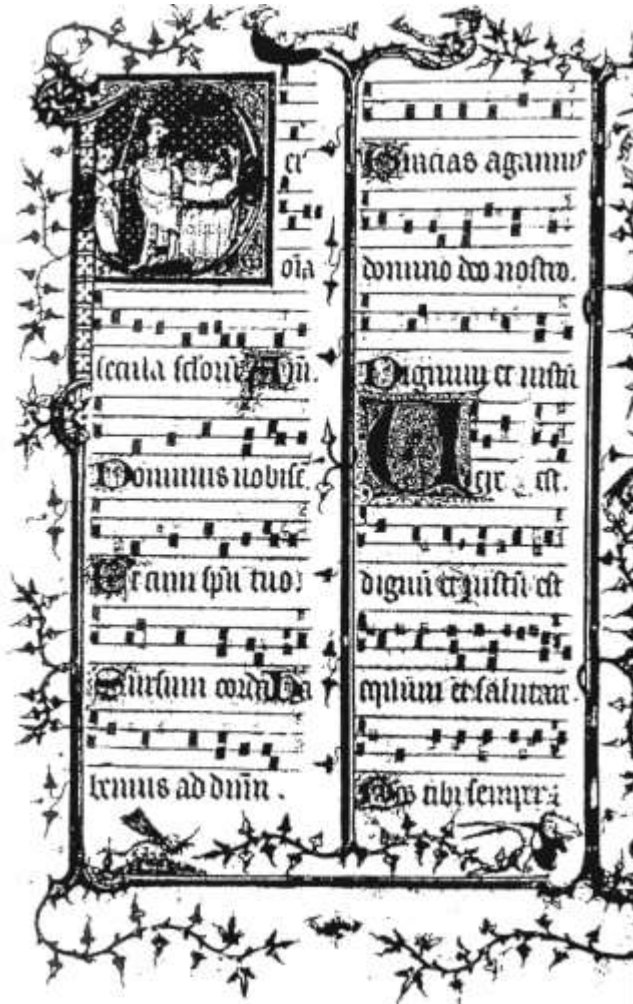 er
oīa
secula sclorū Am̄.
Dominus uobisc̄
Et cum spū tuo.
Sursum corda Ha
bemus ad dūm .
Gracias agamus
domino deo nostro.
Dignum et iustū
est.
dignū et iustū est
equum et salutare.
Nos tibi semper :